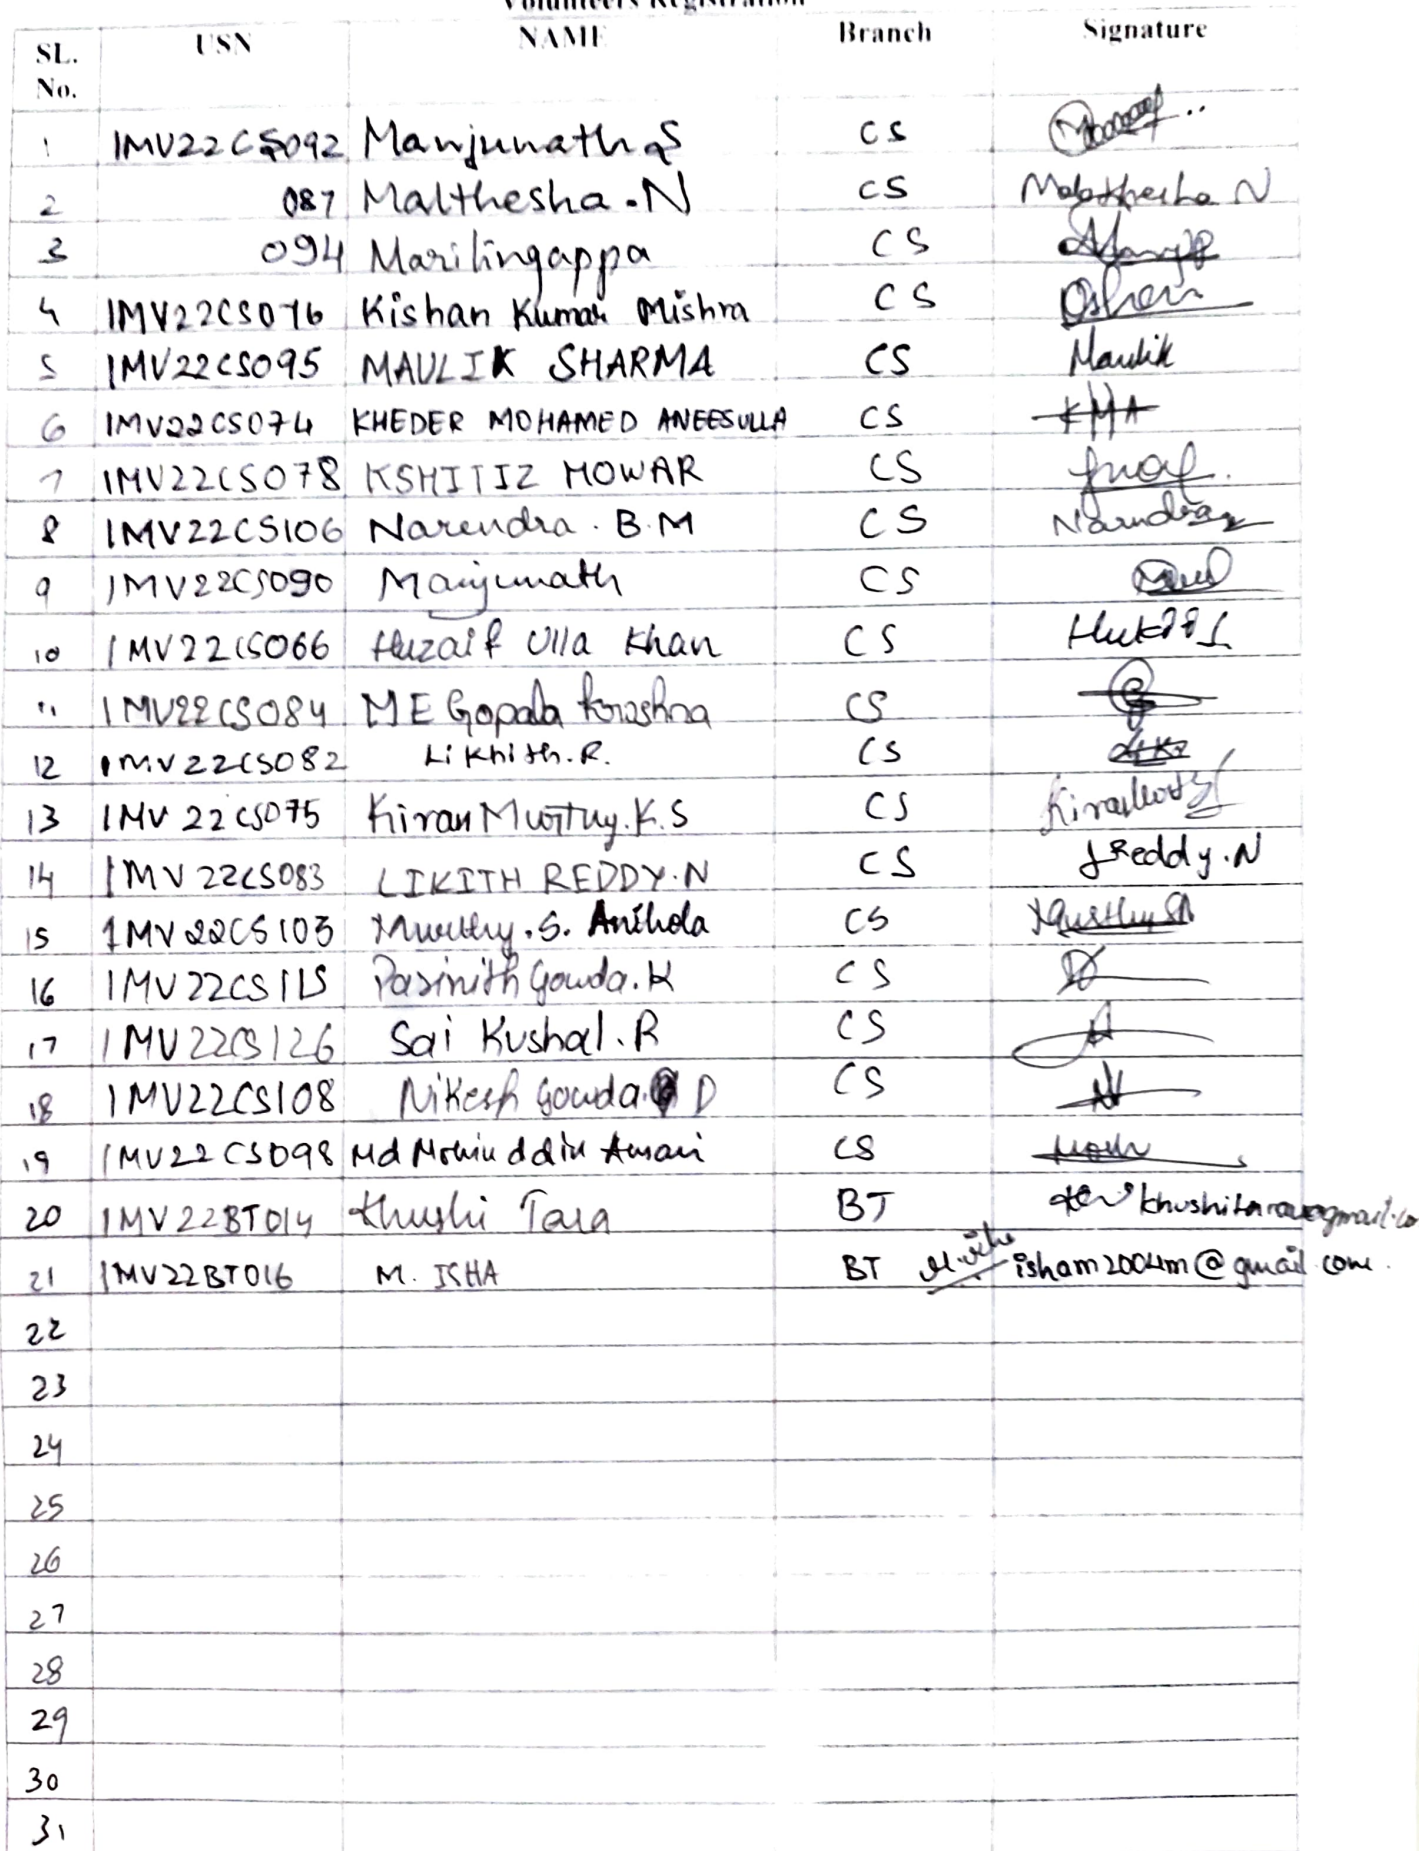 Volunteers Registration
SL. No. USN NAME Branch Signature
1 1MV22CS092 Manjunath S CS
2 087 Malthesha.N CS Malathesha N
3 094 Marilingappa CS
4 1MV22CS076 Kishan Kumar Mishra CS
5 1MV22CS095 MAULIK SHARMA CS Maulik
6 1MV22CS074 KHEDER MOHAMED ANEESULLA CS KMA
7 1MV22CS078 KSHITIZ MOWAR CS
8 1MV22CS106 Narendra.B.M CS Narendra
9 1MV22CS090 Manjunath CS
10 1MV22CS066 Huzaif Ulla Khan CS
11 1MV22CS084 M E Gopala Kroshna CS
12 1MV22CS082 Likhith.R. CS
13 1MV22CS075 Kiran Murthy.K.S CS
14 1MV22CS083 LIKITH REDDY.N CS Reddy.N
15 1MV22CS103 Murthy.S. Anihola CS
16 1MV22CS115 Gowda.K CS
17 1MV22CS126 Sai Kushal.R CS
18 1MV22CS108 Nikesh Gowda. D CS
19 1MV22CS098 Md Mohiuddin Ansari CS
20 1MV22BT014 Khushi Tara BT
21 1MV22BT016 M. ISHA BT isham2004m@gmail.com.
22
23
24
25
26
27
28
29
30
31